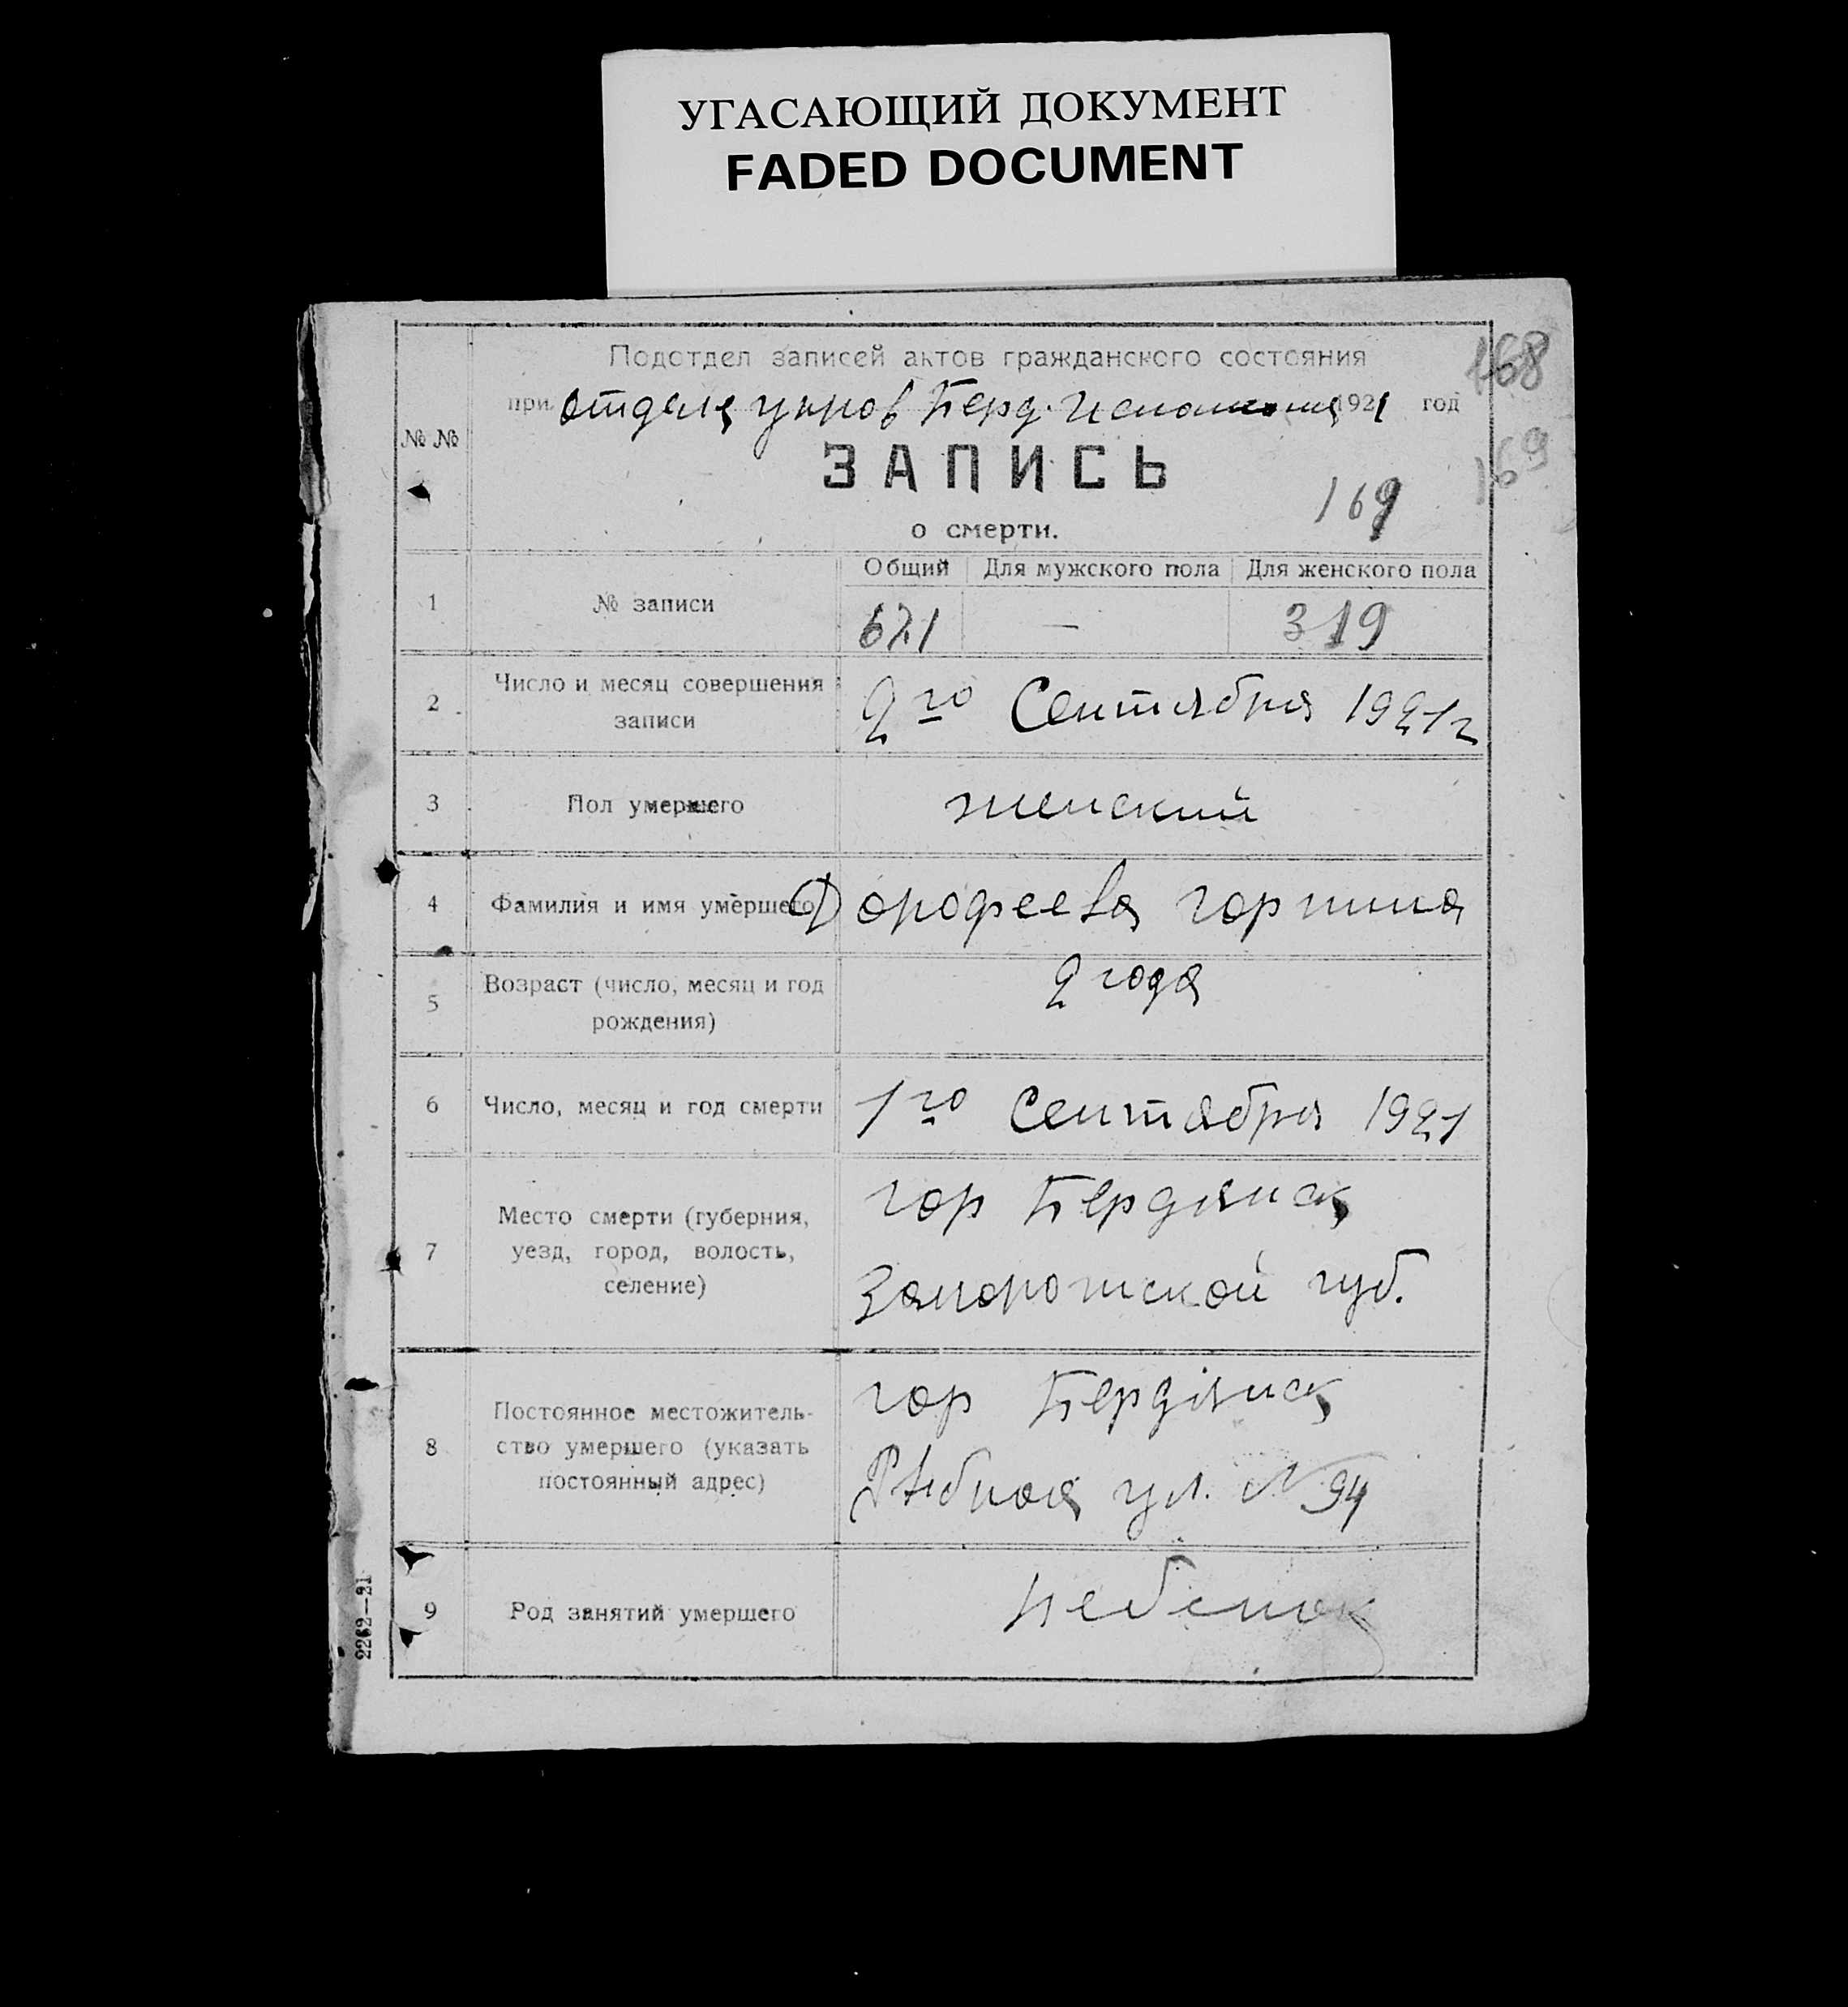 УГАСАЮЩИЙ ДОКУМЕНТ
FADED DOCUMENT
Подотдел записей актов гражданского состояния
при Отделе Берд. 1921 год
168
169
№ №
ЗАПИСЬ
о смерти.
169
Общий Для мужского пола Для женского пола
1 № записи 621 — 319
2 Число и месяц совершения записи 2го Сентября 1921г
3 Пол умершего женский
4 Фамилия и имя умершего
5 Возраст (число, месяц и год рождения) 2 года
6 Число, месяц и год смерти 1го Сентября 1921
7 Место смерти (губерния, уезд, город, волость, селение)
гор Бердянск
Запорожской губ.
8 Постоянное местожитель-
ство умершего (указать
постоянный адрес)
гор Бердянск
ул. № 94
9 Род занятий умершего Ребенок
2262—21